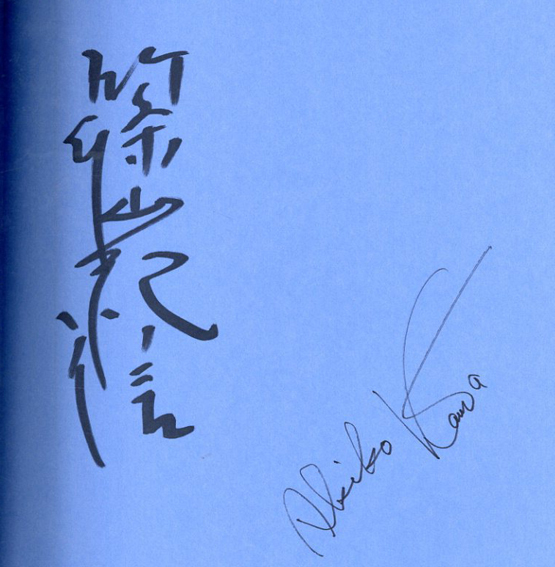 篠山紀信
Akiko